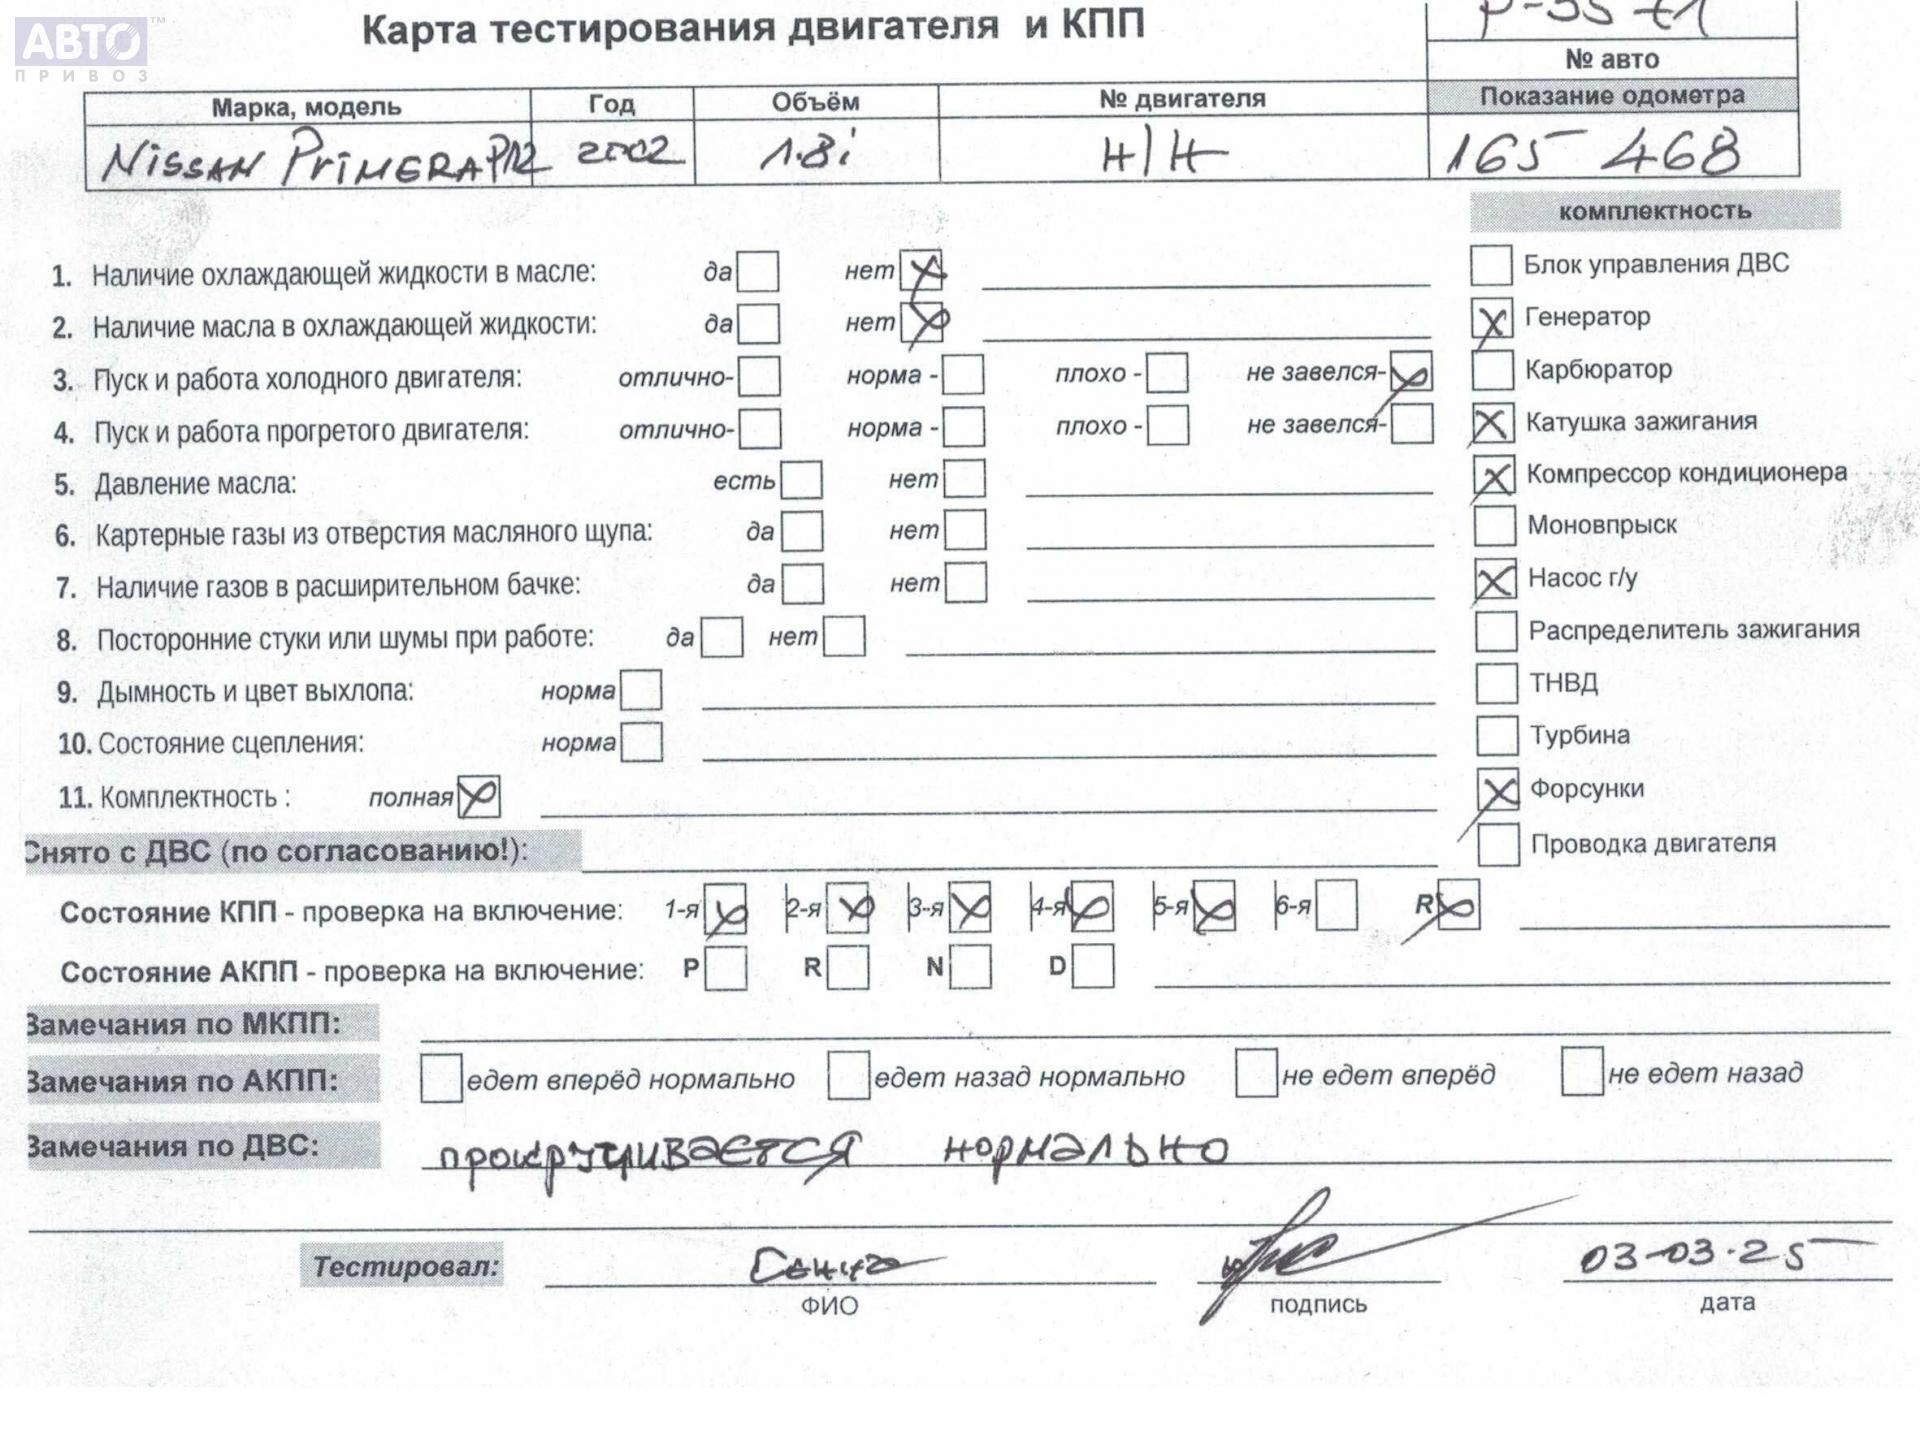 АВТО™
ПРИВОЗ
Карта тестирования двигателя и КПП
№ авто
Марка, модель Год Объём № двигателя Показание одометра
Nissan Primera P12 2002 1.8i Н/Н 165 468
комплектность
1. Наличие охлаждающей жидкости в масле: да нет
Блок управления ДВС
2. Наличие масла в охлаждающей жидкости: да нет
Генератор
3. Пуск и работа холодного двигателя: отлично- норма - плохо - не завелся-
Карбюратор
4. Пуск и работа прогретого двигателя: отлично- норма - плохо - не завелся-
Катушка зажигания
5. Давление масла: есть нет
Компрессор кондиционера
6. Картерные газы из отверстия масляного щупа: да нет
Моновпрыск
7. Наличие газов в расширительном бачке: да нет
Насос г/у
8. Посторонние стуки или шумы при работе: да нет
Распределитель зажигания
9. Дымность и цвет выхлопа: норма
ТНВД
10. Состояние сцепления: норма
Турбина
11. Комплектность : полная
Форсунки
Снято с ДВС (по согласованию!):
Проводка двигателя
Состояние КПП - проверка на включение: 1-я 2-я 3-я 4-я 5-я 6-я R
Состояние АКПП - проверка на включение: P R N D
Замечания по МКПП:
Замечания по АКПП: едет вперёд нормально едет назад нормально не едет вперёд не едет назад
Замечания по ДВС: прокручивается нормально
Тестировал: 03-03-25
ФИО подпись дата